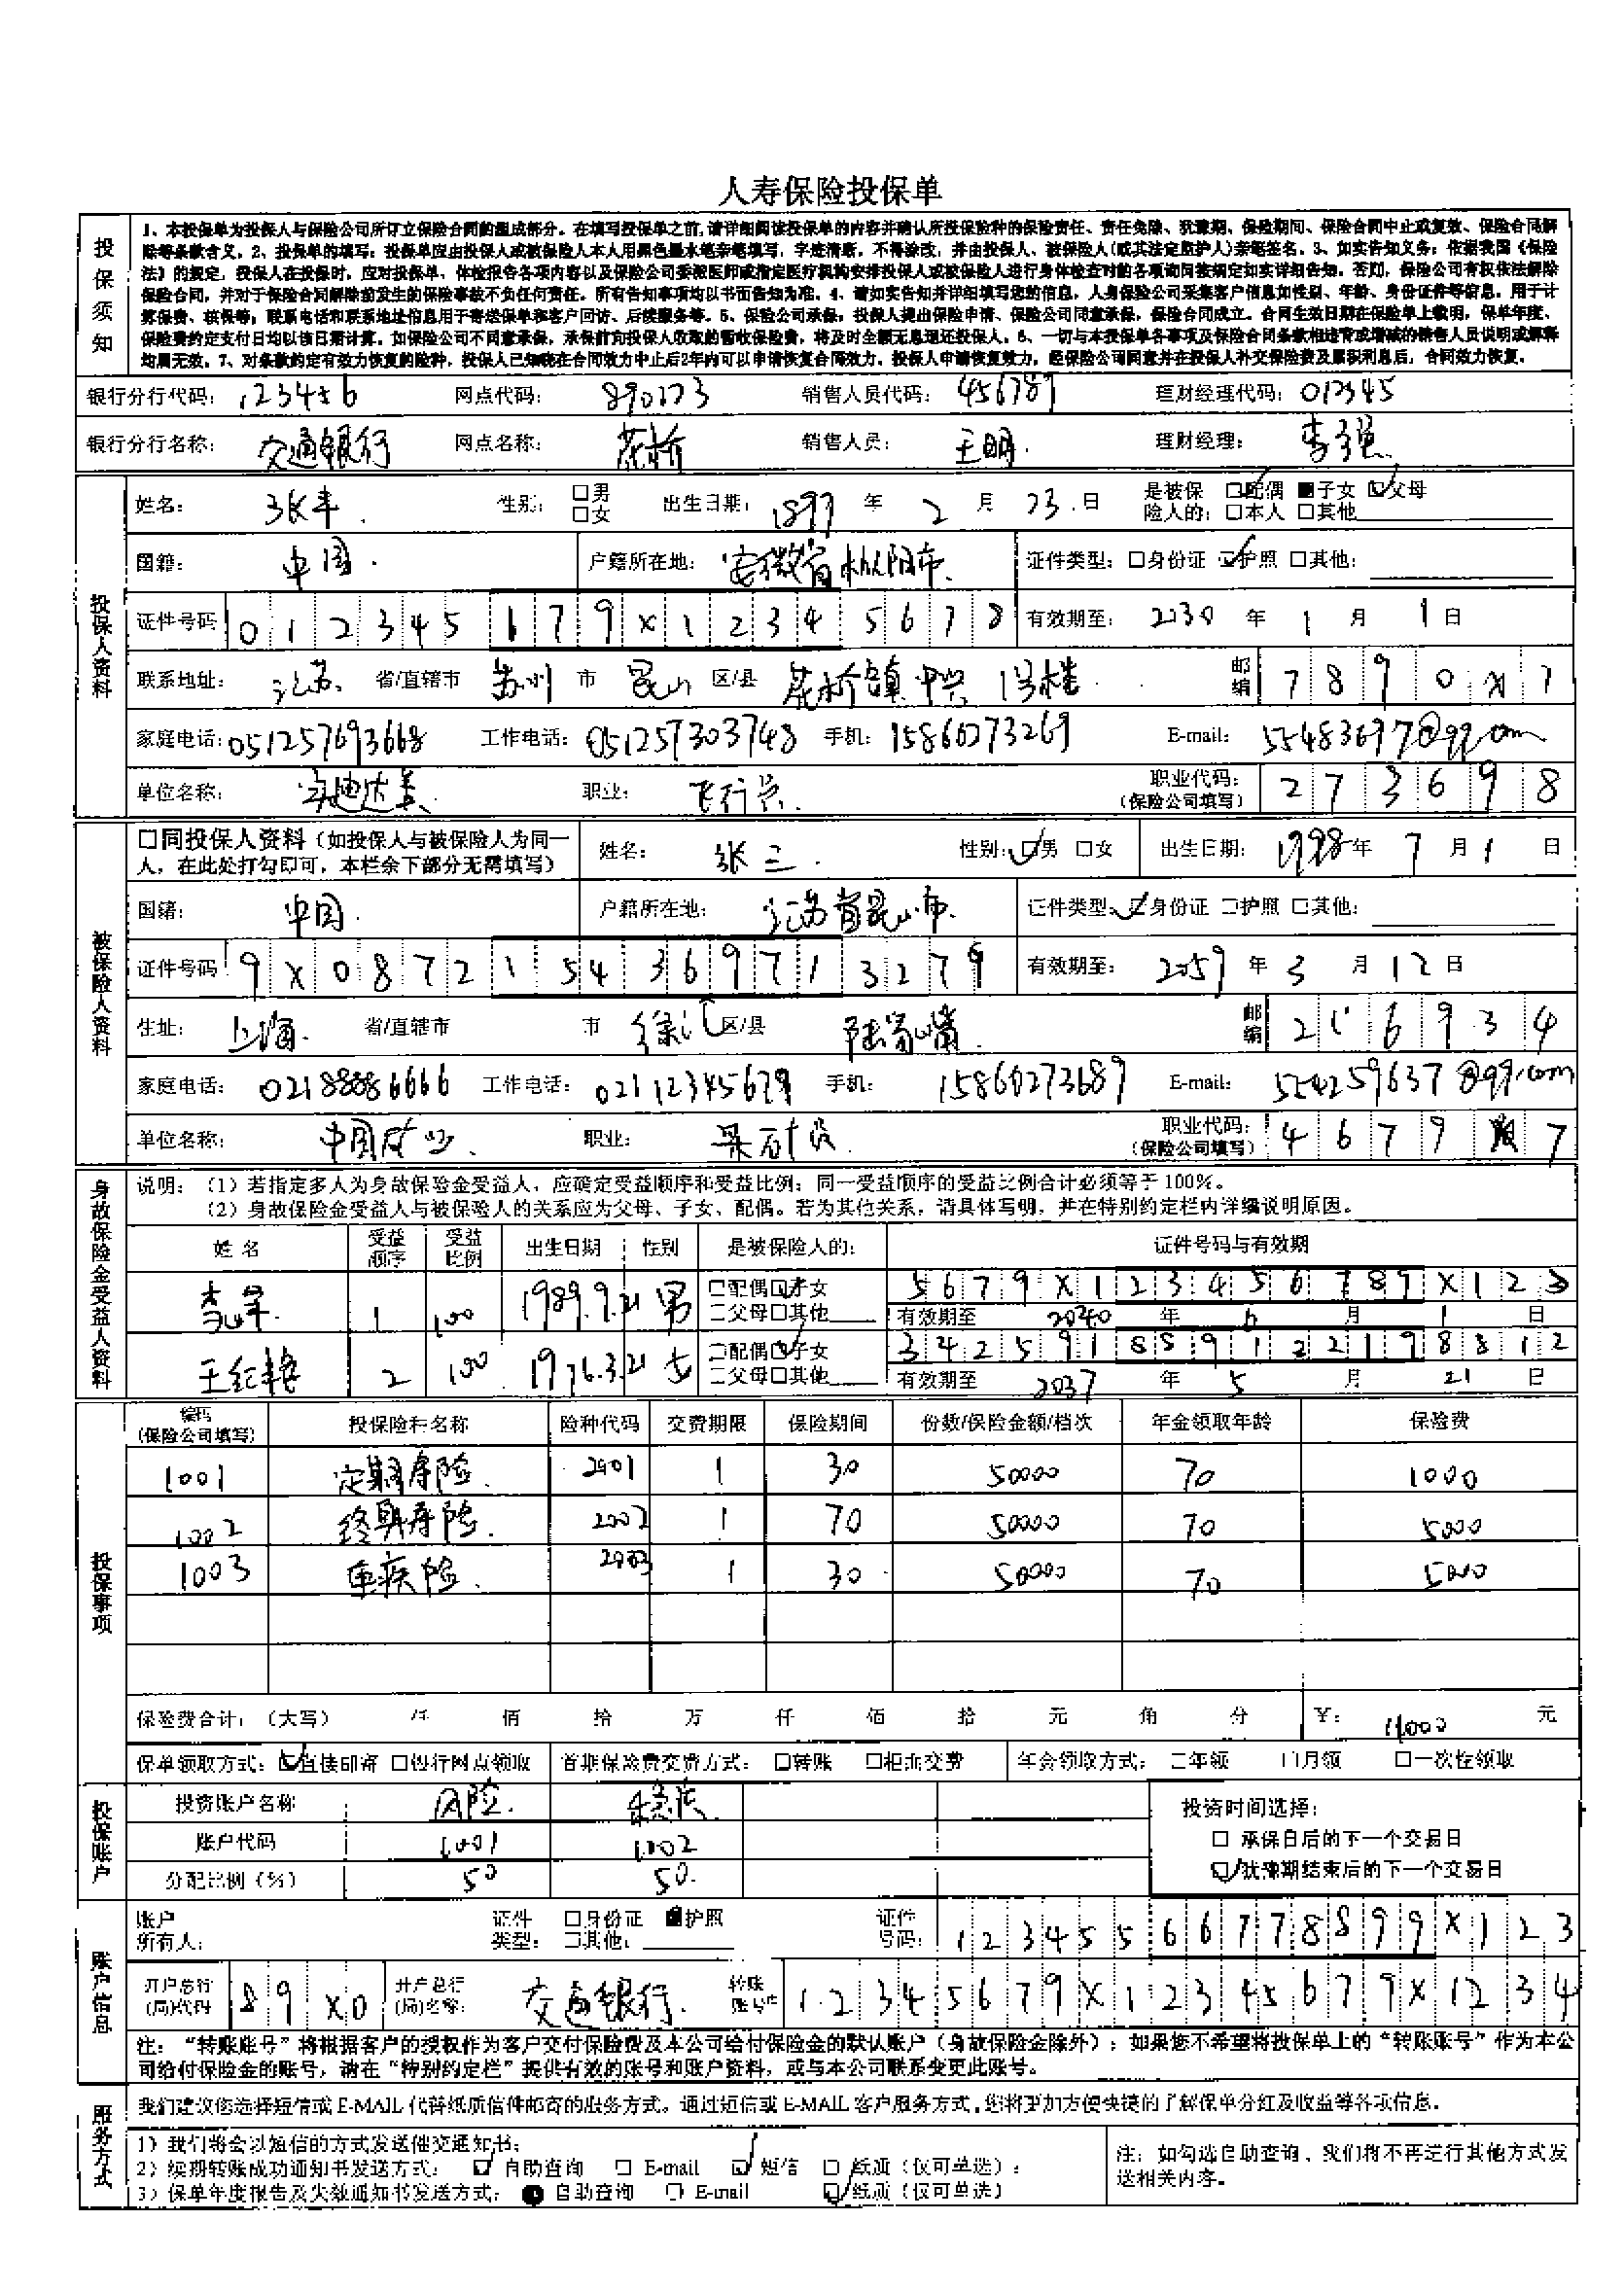 人寿保险投保单
投保须知
1、本投保单为投保人与保险公司所订立保险合同的组成部分。在填写投保单之前,请详细阅读投保单的内容并确认所投保险种的保险责任、责任免除、犹豫期、保险期间、保险合同中止或复效、保险合同解
除等条款含义。2、投保单的填写:投保单应由投保人或被保险人本人用黑色墨水笔亲笔填写,字迹清晰,不得涂改,并由投保人、被保险人(或其法定监护人)亲笔签名。3、如实告知义务:依据我国《保险
法》的规定,投保人在投保时,应对投保单、体检报告各项内容以及保险公司委派医师或指定医疗机构安排投保人或被保险人进行身体检查时的各项询问按规定如实详细告知。否则,保险公司有权依法解除
保险合同,并对于保险合同解除前发生的保险事故不负任何责任。所有告知事项均以书面告知为准。4、请如实告知并详细填写您的信息,人身保险公司采集客户信息如性别、年龄、身份证件等信息,用于计
算保费、核保等;联系电话和联系地址信息用于寄送保单和客户回访、后续服务等。5、保险公司承保:投保人提出保险申请、保险公司同意承保,保险合同成立。合同生效日期在保险单上载明,保单年度、
保险费约定支付日均以该日期计算。如保险公司不同意承保,承保前向投保人收取的暂收保险费,将及时全额无息退还投保人。6、一切与本投保单各事项及保险合同条款相违背或增减的销售人员说明或解释
均属无效。7、对条款约定有效力恢复的险种,投保人已知晓在合同效力中止后2年内可以申请恢复合同效力。投保人申请恢复效力,经保险公司同意并在投保人补交保险费及累积利息后,合同效力恢复。
银行分行代码: 123456 网点代码: 890123 销售人员代码: 456789 理财经理代码: 012345
银行分行名称: 交通银行 网点名称: 花桥 销售人员: 王明 理财经理: 李强
投保人资料
姓名: 张丰 性别: □男 □女 出生日期: 1897 年 2 月 23 日 是被保险人的: □配偶 ■子女 □父母 □本人 □其他
国籍: 中国 户籍所在地: 安徽省 市 证件类型: □身份证 □护照 □其他:
证件号码 0 1 2 3 4 5 1 7 9 X 1 2 3 4 5 6 7 8 有效期至: 2030 年 1 月 1 日
联系地址: 江苏 省/直辖市 苏州 市 昆山 区/县 花桥镇 1号楼 邮编 7 8 9 0 X 1
家庭电话: 051257693668 工作电话: 051257303748 手机: 15860273269 E-mail: 55483697@qq.com
单位名称: 职业: 飞行员 职业代码:(保险公司填写) 2 7 3 6 9 8
被保险人资料
□同投保人资料(如投保人与被保险人为同一人,在此处打勾即可,本栏余下部分无需填写) 姓名: 张三 性别: □男 □女 出生日期: 1998 年 7 月 1 日
国籍: 中国 户籍所在地: 江苏省昆山市 证件类型: □身份证 □护照 □其他:
证件号码 9 X 0 8 7 2 1 5 4 3 6 9 7 1 3 2 7 9 有效期至: 2059 年 3 月 12 日
住址: 上海 省/直辖市 市 徐汇 区/县 陆家嘴 邮编 2 1 6 9 3 4
家庭电话: 02188886666 工作电话: 02112345679 手机: 15860273689 E-mail: 554259637@qq.com
单位名称: 中国矿业 职业: 采矿员 职业代码:(保险公司填写) 4 6 7 9 7
身故保险金受益人资料
说明:(1)若指定多人为身故保险金受益人,应确定受益顺序和受益比例;同一受益顺序的受益比例合计必须等于100%。
(2)身故保险金受益人与被保险人的关系应为父母、子女、配偶。若为其他关系,请具体写明,并在特别约定栏内详细说明原因。
姓名 受益顺序 受益比例 出生日期 性别 是被保险人的: 证件号码与有效期
1 100 1989.9.21 男 □配偶□子女 □父母□其他 5 6 7 9 X 1 2 3 4 5 6 7 8 9 X 1 2 3
有效期至 2040 年 6 月 1 日
王红艳 2 100 1976.3.21 女 □配偶□子女 □父母□其他 3 4 2 5 9 1 8 8 9 1 2 2 1 9 8 8 1 2
有效期至 2037 年 5 月 21 日
投保事项
编码(保险公司填写) 投保险种名称 险种代码 交费期限 保险期间 份数/保险金额/档次 年金领取年龄 保险费
1001 定期寿险 2001 1 30 50000 70 1000
1002 终身寿险 2002 1 70 50000 70 5000
1003 重疾险 2003 1 30 50000 70 5000
保险费合计:(大写) 仟 佰 拾 万 仟 佰 拾 元 角 分 ¥: 11000 元
保单领取方式: □直接邮寄 □银行网点领取 首期保险费交费方式: □转账 □柜面交费 年金领取方式: □年领 □月领 □一次性领取
投保账户
投资账户名称 风险 稳庆 投资时间选择:
账户代码 1001 1002 □ 承保日后的下一个交易日
分配比例(%) 50 50 □ 犹豫期结束后的下一个交易日
账户信息
账户所有人: 证件类型: □身份证 ■护照 □其他: 证件号码: 1 2 3 4 5 5 6 6 7 7 8 8 9 9 X 1 2 3
开户总行(局)代码 8 9 X 0 开户总行(局)名称: 交通银行 转账账号: 1 2 3 4 5 6 7 9 X 1 2 3 4 5 6 7 9 X 1 2 3 4
注:“转账账号”将根据客户的授权作为客户交付保险费及本公司给付保险金的默认账户(身故保险金除外);如果您不希望将投保单上的“转账账号”作为本公
司给付保险金的账号,请在“特别约定栏”提供有效的账号和账户资料,或与本公司联系变更此账号。
服务方式
我们建议您选择短信或E-MAIL代替纸质信件邮寄的服务方式。通过短信或E-MAIL客户服务方式,您将更加方便快捷的了解保单分红及收益等各项信息。
1)我们将会以短信的方式发送催交通知书;
2)续期转账成功通知书发送方式: □ 自助查询 □ E-mail □ 短信 □ 纸质(仅可单选);
3)保单年度报告及失效通知书发送方式: 自助查询 □ E-mail □ 纸质(仅可单选)
注:如勾选自助查询,我们将不再进行其他方式发送相关内容。